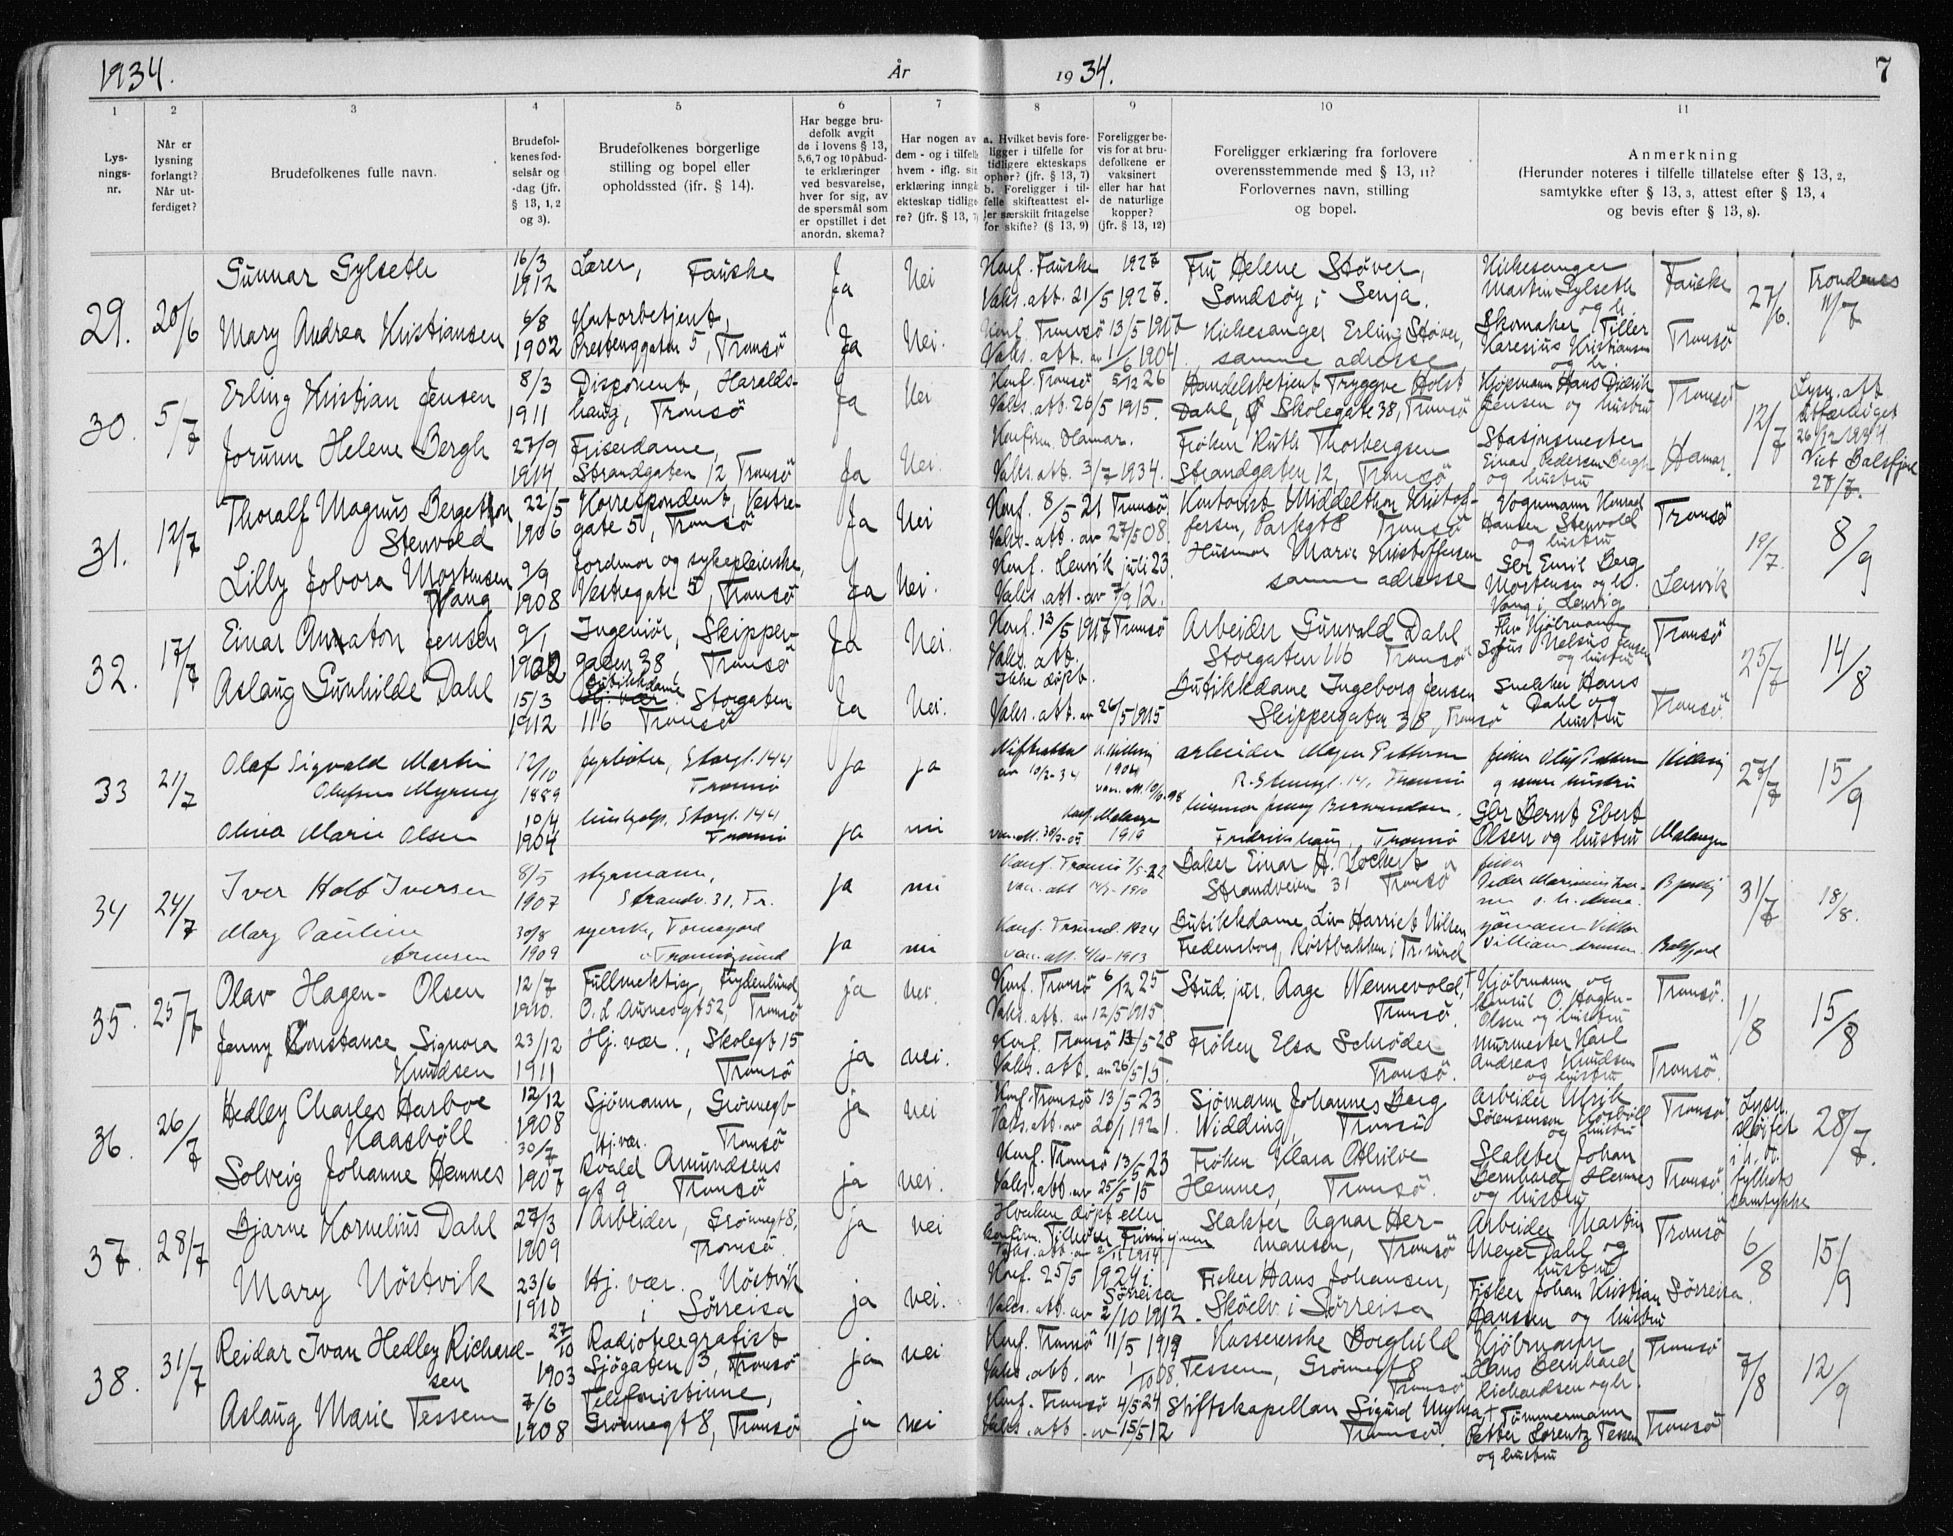 1934.
År
1934.
7
1
2
3
4
5
6
7
8
9
10
11
Lys-
nings-
nr.
Når er
lysning
forlangt?
Når ut-
ferdiget?
Brudefolkenes fulle navn.
Brudefol-
kenes fød-
selsår og
-dag (jfr.
§ 13, 1, 2
og 3).
Brudefolkenes borgerlige
stilling og bopel eller
opholdssted (ifr. § 14).
Har begge bru-
defolk avgit
de i lovens § 13,
5, 6, 7 og 10 påbud-
te erklæringer
ved besvarelse,
hver for sig, av
de spørsmål som
er opstillet i det
anordn. skema?
Har nogen av
dem - og i tilfelle
hvem - iflg. sin
erklæring inngåt
ekteskap tidlige-
re? (jfr. § 13, 7)
a. Hvilket bevis fore-
ligger i tilfelle for
tidligere ekteskaps
ophør? (jfr. § 13, 7)
b. Foreligger i til-
felle skifteattest el-
ler særskilt fritagelse
for skifte? (§ 13, 9)
Foreligger be-
vis for at bru-
defolkene er
vaksinert
eller har hat
de naturlige
kopper?
(jfr. § 13, 12)
Foreligger erklæring fra forlovere
overensstemmende med § 13, 11?
Forlovernes navn, stilling
og bopel.
Anmerkning
(Herunder noteres i tilfelle tillatelse efter § 13, 2,
samtykke efter § 13, 3, attest efter § 13, 4
og bevis efter § 13, 8).
29. 20/6
Gunnar Gylseth
16/3
1912
Lærer, Fauske
Ja
Nei
Konf. Fauske 1927
Vaks. att. 21/5 1927.
Fru Helene Støver,
Sandsøy i Senja.
Kirkesanger
Martin Gylseth
og h.
Fauske
27/6.
Trondenes
11/7
Mary Andrea Kristiansen
6/8
1902
Kontorbetjent,
Prestenggaten 5, Tromsö
Ja
Nei.
Konf. Tromsö 13/5 1917
Vaks. att. av 1/6 1904
Kirkesanger Erling Støver,
samme adresse
Skomaker Tiller
Karesius Kristiansen
og h.
Tromsö
30. 5/7
Erling Kristian Jensen
8/3
1911
Disponent, Haralds-
haug, Tromsö
Ja
Nei
Konf. Tromsö 5/12 26
Vaks. att. 26/5 1915.
Handelsbetjent Tryggve Holst
Dahl, Skolegate 38, Tromsö
Kjøpmann Hans Didrik
Jensen og hustru
Tromsö
12/7
Lysn. att
utfærdiget
26/12 1934
Viet Balsfjord
27/7.
Jorunn Helene Bergh
27/9
1914
Friserdame,
Strandgaten 12 Tromsö
Ja
Nei.
Konfirm. Hamar.
Vaks. att. 3/7 1934.
Frøken Ruth Thorbergsen
Strandgaten 12, Tromsö
Stasjonsmester
Einar Pedersen Bergh
og hustru
Hamar
31. 12/7
Thoralf Magnus Bergethon
Stenvold
22/5
1906
Korrespondent, Vestre-
gate 5, Tromsö
Ja
Nei
Konf. 8/5 21 Tromsö
Vaks. att. av 27/5 08.
Kontorist Middelthon Kristof-
fersen, Parkgt 8 Tromsö
Vognmann Konrad
Hansen Stenvold
og hustru
Tromsö
19/7.
8/9
Lilly Jobora Mortensen
Vang
9/9
1908
Jordmor og sykepleierske,
Vestregate 5, Tromsö
Ja
Nei.
Konf. Lenvik juli 23.
Vaks. att. av 7/9 12.
Husmor Marie Kristoffersen
samme adresse
Gbr Emil Berg
Mortensen og h.
Vang i Lenvig
Lenvik
32. 17/7
Einar Annaton Jensen
9/1
1902
Ingeniør, Skipper-
gaten 38, Tromsö
Ja
Nei.
Konf. 13/5 1917 Tromsö
Vaks. att.
Arbeider Gunvald Dahl
Storgaten 116 Tromsö
Fhv Kjøbmann
Sofus Nelsus Jensen
og hustru
Tromsö
25/7
14/8
Aslaug Gunhilde Dahl
15/3
1912
Butikkdame
Hj. vær. Storgaten
116 Tromsö
Ja
Nei.
Ikke døpt.
Vaks. att. av 26/5 1915
Butikkdame Ingeborg Jensen
Skippergaten 38, Tromsö
Snekker Hans
Dahl og
hustru
Tromsö.
33 21/7
Olaf Sigvald Martin
Olufsen Myreng
12/10
1889
fyrbøter, Storgt. 144
Tromsö
ja
ja
Skifteattest
av 10/2-34
K. Hillesøy
1904
vac. att. 10/6-98
arbeider Magnus Pettersen
R. Stensgt. 14, Tromsö
fisker Oluf
og hustru
Hillesøy
27/7
15/9
Olina Marie Olsen
10/4
1904
hushjelp, Storgt. 144
Tromsö
ja
nei
Konf. Malangen
1919
vac. att. 30/3-05
husmor Jenny Berntsen,
Fredrikshaug, Tromsö
Gbr Bernt Ebert
Olsen og hustru
Malangen
34 24/7
Iver Holt Iversen
8/5
1907
styrmann,
Strandv. 31, Tr.
ja
nei
Konf. Tromsö 7/5-22
vac. att 1910
Baker Einar H. Lockert
Strandveien 31 Tromsö
fisker
Peder Marinius
o. h. Anna.
Bjarkøy
31/7
18/8.
Mary Pauline
Arnesen
30/8
1909
syerske, Tomasjord
i Tromsøysund
ja
nei
Konf. Tr.sund. 1924
vac. att. 4/10-1913
Butikkdame Liv Harriet Nilsen
Fredensborg, Röstbakken i Tr.sund
sjømann Viktor
Villiam Arnesen
Balsfjord
35. 25/7
Olav Hagen-Olsen
12/7
1910.
Fullmektig, Frydenlund,
O. L. Aunesgt 52, Tromsö
ja
nei.
Konf. Tromsö 6/12 25
Vaks. att. av 12/5 1915.
Stud. jur. Aage Wennevold,
Tromsö.
Kjøbmann og
konsul O. Hagen-
Olsen og hustru
Tromsö.
1/8
15/8
Jenny Constance Signora
Knudsen
23/12
1911
Hj. vær., Skolegt 15
Tromsö
ja
nei.
Konf. Tromsö 13/5 28
Vaks. att. av 26/5 15.
Frøken Elsa Schrøder
Tromsö.
Murmester Karl
Andreas Knudsen
og hustru
Tromsö.
36. 26/7
Hedley Charles Harboe
Kaasböll
12/12
1908
Sjömann, Grönnegt
Tromsö
ja
nei
Konf. Tromsö 13/5 23
Vaks. att. av 20/1 1921.
Sjömann Johannes Berg
Widding, Tromsö
Arbeider Ulrik
Sørensenson Kaasböll
og hustru
Tromsö
Lysn.
sløifet
i h. t.
fylkets
samtykke
28/7.
Solveig Johanne Hemnes
30/7
1907
Hj. vær.
Roald Amundsens
gt 9 Tromsö
ja
nei.
Konf. Tromsö 13/5 23
Vaks. att. av 25/5 15
Frøken Klara Othilve
Hemnes, Tromsö.
Slakter Johan
Bernhard Hemnes
og hustru
Tromsö
37. 28/7
Bjarne Kornelius Dahl
27/3
1909
Arbeider, Grönnegt 8,
Tromsö.
ja
nei
Hverken døpt eller
konfirm. Tilhører Frimisjonen
Vaks. att. av 2/11 1914
Slakter Agnar Her-
mansen, Tromsö
Arbeider Martin
Meyer Dahl og
hustru
Tromsö
6/8
15/9
Mary Nöstvik
23/6
1910
Hj. vær. Nöstvik
i Sørreisa
ja
nei.
Konf. 25/5 1924 i
Sørreisa
Vaks. att. av 2/10 1912.
Fisker Hans Johansen,
Skøelv i Sørreisa
Fisker Johan Kristian
Hanssen og hustru
Sørreisa
38. 31/7
Reidar Ivan Hedley Richard-
sen
27/10
1903
Radiotelegrafist
Sjøgaten 3, Tromsö
ja
nei
Konf. Tromsö 11/5 1919
Vaks. att. av 1/10 08
Kassererske Borghild
Tessem, Grönnegt 8
Tromsö
Kjöbmann
Hans Bernhard
Richardsen og h.
Tromsö
7/8
12/9
Aslaug Marie Tessem
7/6
1908
Telefonistinne,
Grönnegt 8, Tromsö
ja
nei
Konf. Tromsö 4/5 24
Vaks. att. av 15/5 12
Stiftskapellan Sigurd
Tromsö.
Tömmermann
Petter Lorentz Tessem
og hustru
Tromsö